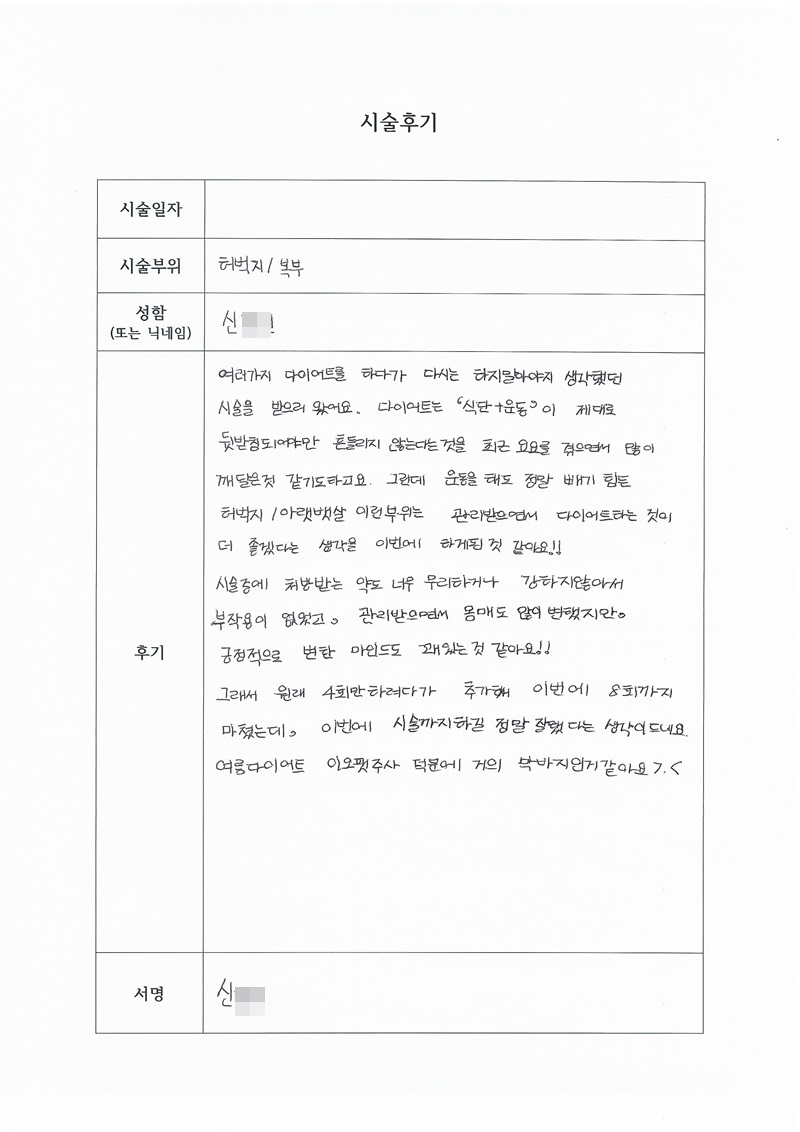 시술후기
시술일자
시술부위 허벅지 / 복부
성함
(또는 닉네임) 신
여러가지 다이어트를 하다가 다시는 하지말아야지 생각했던
시술을 받으러 왔어요. 다이어트는 "식단+운동"이 제대로
뒷받침되어야만 흔들리지 않는다는것을 최근 요요를 겪으면서 많이
깨달은것 같기도하고요. 그런데 운동을 해도 정말 빼기 힘든
허벅지 / 아랫뱃살 이런부위는 관리받으면서 다이어트하는 것이
더 좋겠다는 생각을 이번에 하게된것 같아요!!
시술중에 처방받는 약도 너무 무리하거나 강하지않아서
부작용이 없었고, 관리받으면서 몸매도 많이 변했지만,
긍정적으로 변한 마인드도 꽤있는것 같아요!!
후기
그래서 원래 4회만하려다가 추가해 이번에 8회까지
마쳤는데, 이번에 시술까지하길 정말 잘했다는 생각이드네요.
여름다이어트 이오팻주사 덕분에 거의 막바지인거같아요 >.<
서명 신